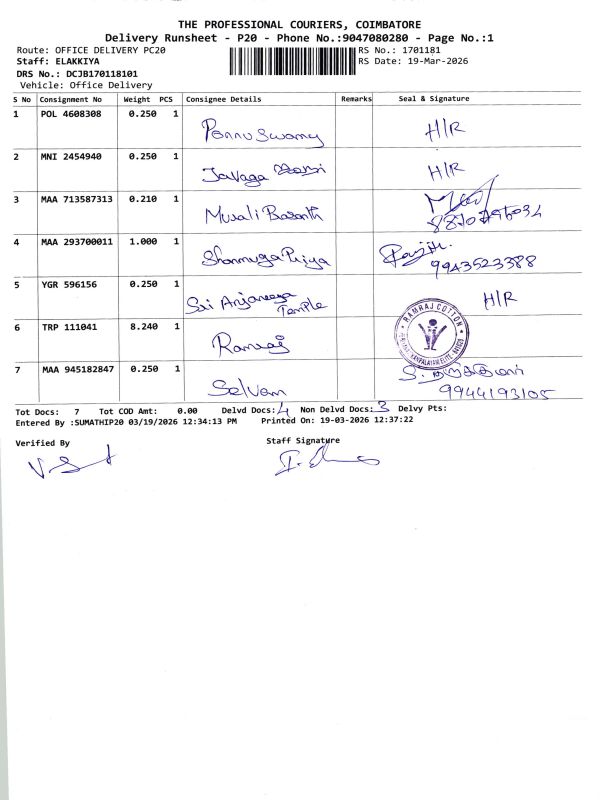 THE PROFESSIONAL COURIERS, COIMBATORE
Delivery Runsheet - P20 - Phone No.:9047080280 - Page No.:1
Route: OFFICE DELIVERY PC20 RS No.: 1701181
Staff: ELAKKIYA RS Date: 19-Mar-2026
DRS No.: DCJB170118101
Vehicle: Office Delivery
S No Consignment No Weight PCS Consignee Details Remarks Seal & Signature
1 POL 4608308 0.250 1 Ponnu Swamy H/R
2 MNI 2454940 0.250 1 H/R
3 MAA 713587313 0.210 1 Murali Basanth
4 MAA 293700011 1.000 1 Shanmuga Priya 9943523388
5 YGR 596156 0.250 1 Sri Anjaneya Temple H/R
6 TRP 111041 8.240 1 Ramraj RAMRAJ COTTON
7 MAA 945182847 0.250 1 Selvam 9944193105
Tot Docs: 7 Tot COD Amt: 0.00 Delvd Docs: 4 Non Delvd Docs: 3 Delvy Pts:
Entered By :SUMATHIP20 03/19/2026 12:34:13 PM Printed On: 19-03-2026 12:37:22
Verified By Staff Signature